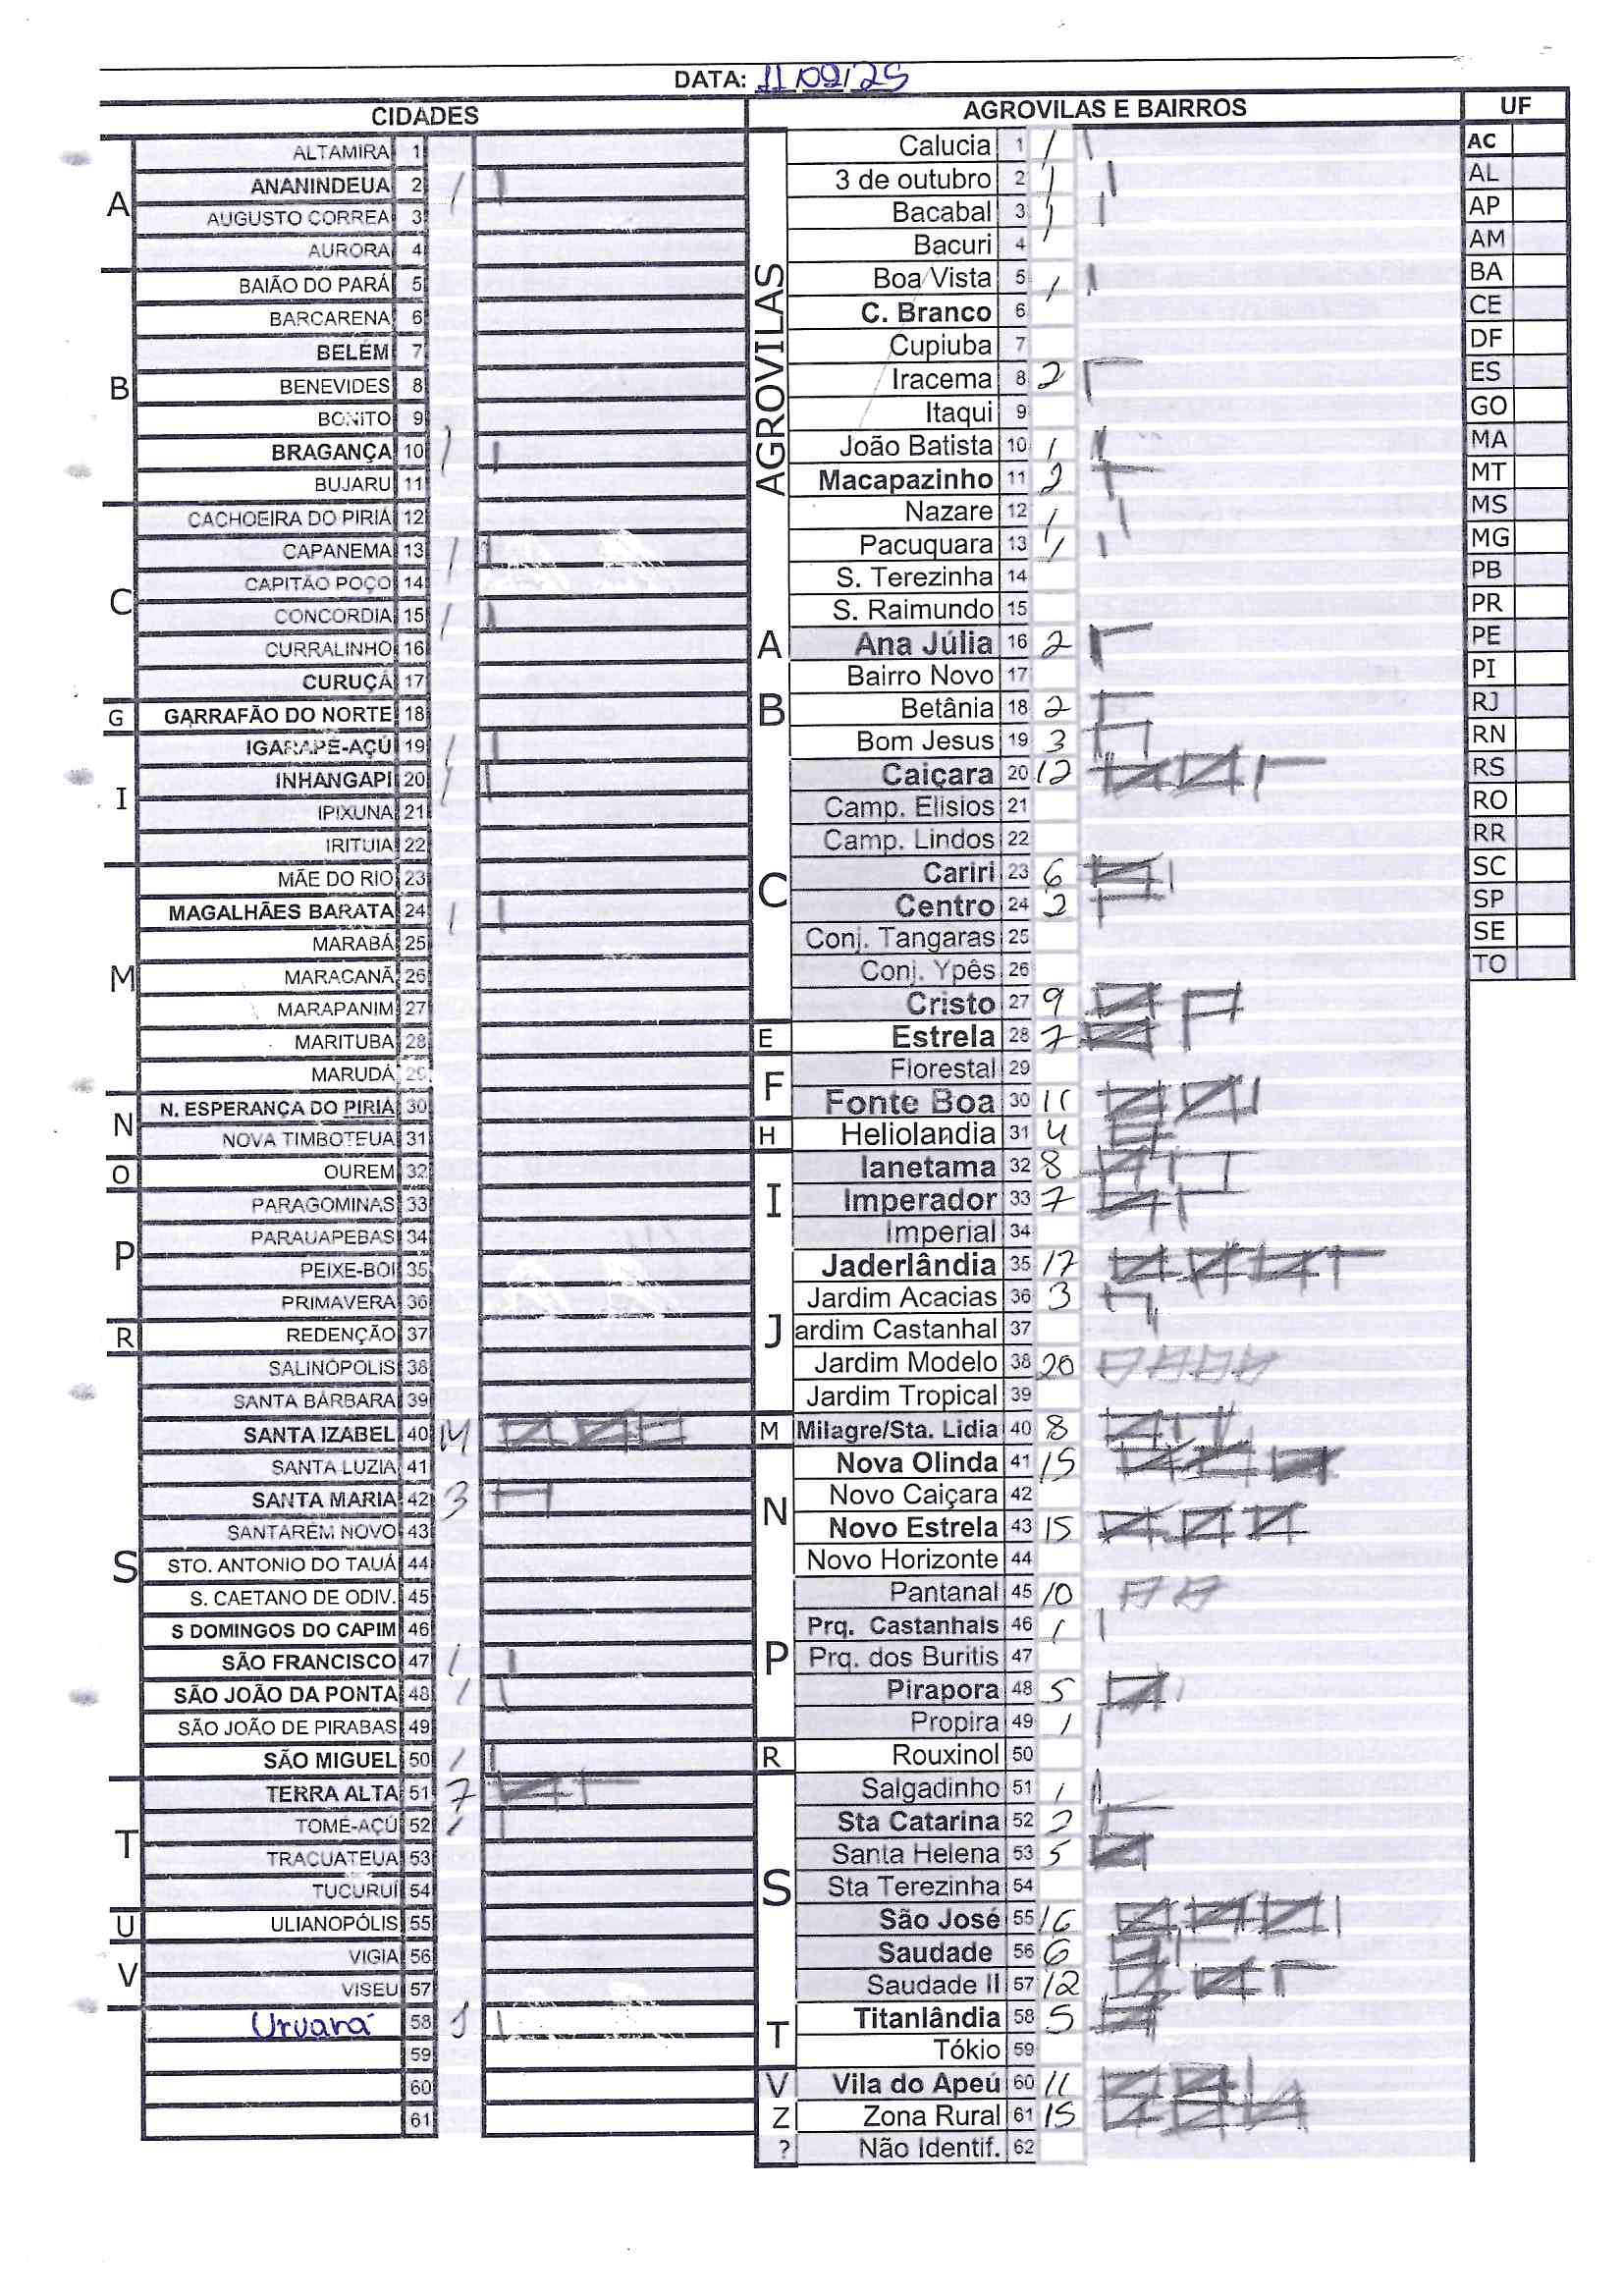 DATA: 11/09/25
CIDADES AGROVILAS E BAIRROS UF
A
ALTAMIRA 1
ANANINDEUA 2 1
AUGUSTO CORREA 3
AURORA 4
B
BAIÃO DO PARÁ 5
BARCARENA 6
BELÉM 7
BENEVIDES 8
BONITO 9
BRAGANÇA 10 1
BUJARU 11
C
CACHOEIRA DO PIRIÁ 12
CAPANEMA 13 1
CAPITÃO POÇO 14
CONCORDIA 15 1
CURRALINHO 16
CURUÇÁ 17
G
GARRAFÃO DO NORTE 18
I
IGARAPÉ-AÇÚ 19 1
INHANGAPI 20 1
IPIXUNA 21
IRITUIA 22
M
MÃE DO RIO 23
MAGALHÃES BARATA 24 1
MARABÁ 25
MARACANÃ 26
MARAPANIM 27
MARITUBA 28
MARUDÁ 29
N
N. ESPERANÇA DO PIRIÁ 30
NOVA TIMBOTEUA 31
O
OUREM 32
P
PARAGOMINAS 33
PARAUAPEBAS 34
PEIXE-BOI 35
PRIMAVERA 36
R
REDENÇÃO 37
S
SALINÓPOLIS 38
SANTA BÁRBARA 39
SANTA IZABEL 40 14
SANTA LUZIA 41
SANTA MARIA 42 3
SANTARÉM NOVO 43
STO. ANTONIO DO TAUÁ 44
S. CAETANO DE ODIV. 45
S DOMINGOS DO CAPIM 46
SÃO FRANCISCO 47 1
SÃO JOÃO DA PONTA 48 1
SÃO JOÃO DE PIRABAS 49
SÃO MIGUEL 50 1
T
TERRA ALTA 51 7
TOMÉ-AÇÚ 52 1
TRACUATEUA 53
TUCURUÍ 54
U
ULIANOPÓLIS 55
V
VIGIA 56
VISEU 57
Uruará 58 1
59
60
61
AGROVILAS
Calucia 1 1
3 de outubro 2 1
Bacabal 3 1
Bacuri 4
Boa Vista 5 1
C. Branco 6
Cupiuba 7
Iracema 8 2
Itaqui 9
João Batista 10 1
Macapazinho 11 2
Nazare 12 1
Pacuquara 13 1
S. Terezinha 14
S. Raimundo 15
A
Ana Júlia 16 2
Bairro Novo 17
B
Betânia 18 2
Bom Jesus 19 3
C
Caiçara 20 12
Camp. Elisios 21
Camp. Lindos 22
Cariri 23 6
Centro 24 2
Conj. Tangaras 25
Conj. Ypês 26
Cristo 27 9
E
Estrela 28 7
F
Florestal 29
Fonte Boa 30 11
H
Heliolandia 31 4
I
Ianetama 32 8
Imperador 33 7
Imperial 34
J
Jaderlândia 35 17
Jardim Acacias 36 3
ardim Castanhal 37
Jardim Modelo 38 20
Jardim Tropical 39
M
Milagre/Sta. Lidia 40 8
N
Nova Olinda 41 15
Novo Caiçara 42
Novo Estrela 43 15
Novo Horizonte 44
P
Pantanal 45 10
Prq. Castanhais 46 1
Prq. dos Buritis 47
Pirapora 48 5
Propira 49 1
R
Rouxinol 50
S
Salgadinho 51 1
Sta Catarina 52 2
Santa Helena 53 5
Sta Terezinha 54
São José 55 16
Saudade 56 6
Saudade II 57 12
T
Titanlândia 58 5
Tókio 59
V
Vila do Apeú 60 11
Z
Zona Rural 61 15
?
Não Identif. 62
AC
AL
AP
AM
BA
CE
DF
ES
GO
MA
MT
MS
MG
PB
PR
PE
PI
RJ
RN
RS
RO
RR
SC
SP
SE
TO